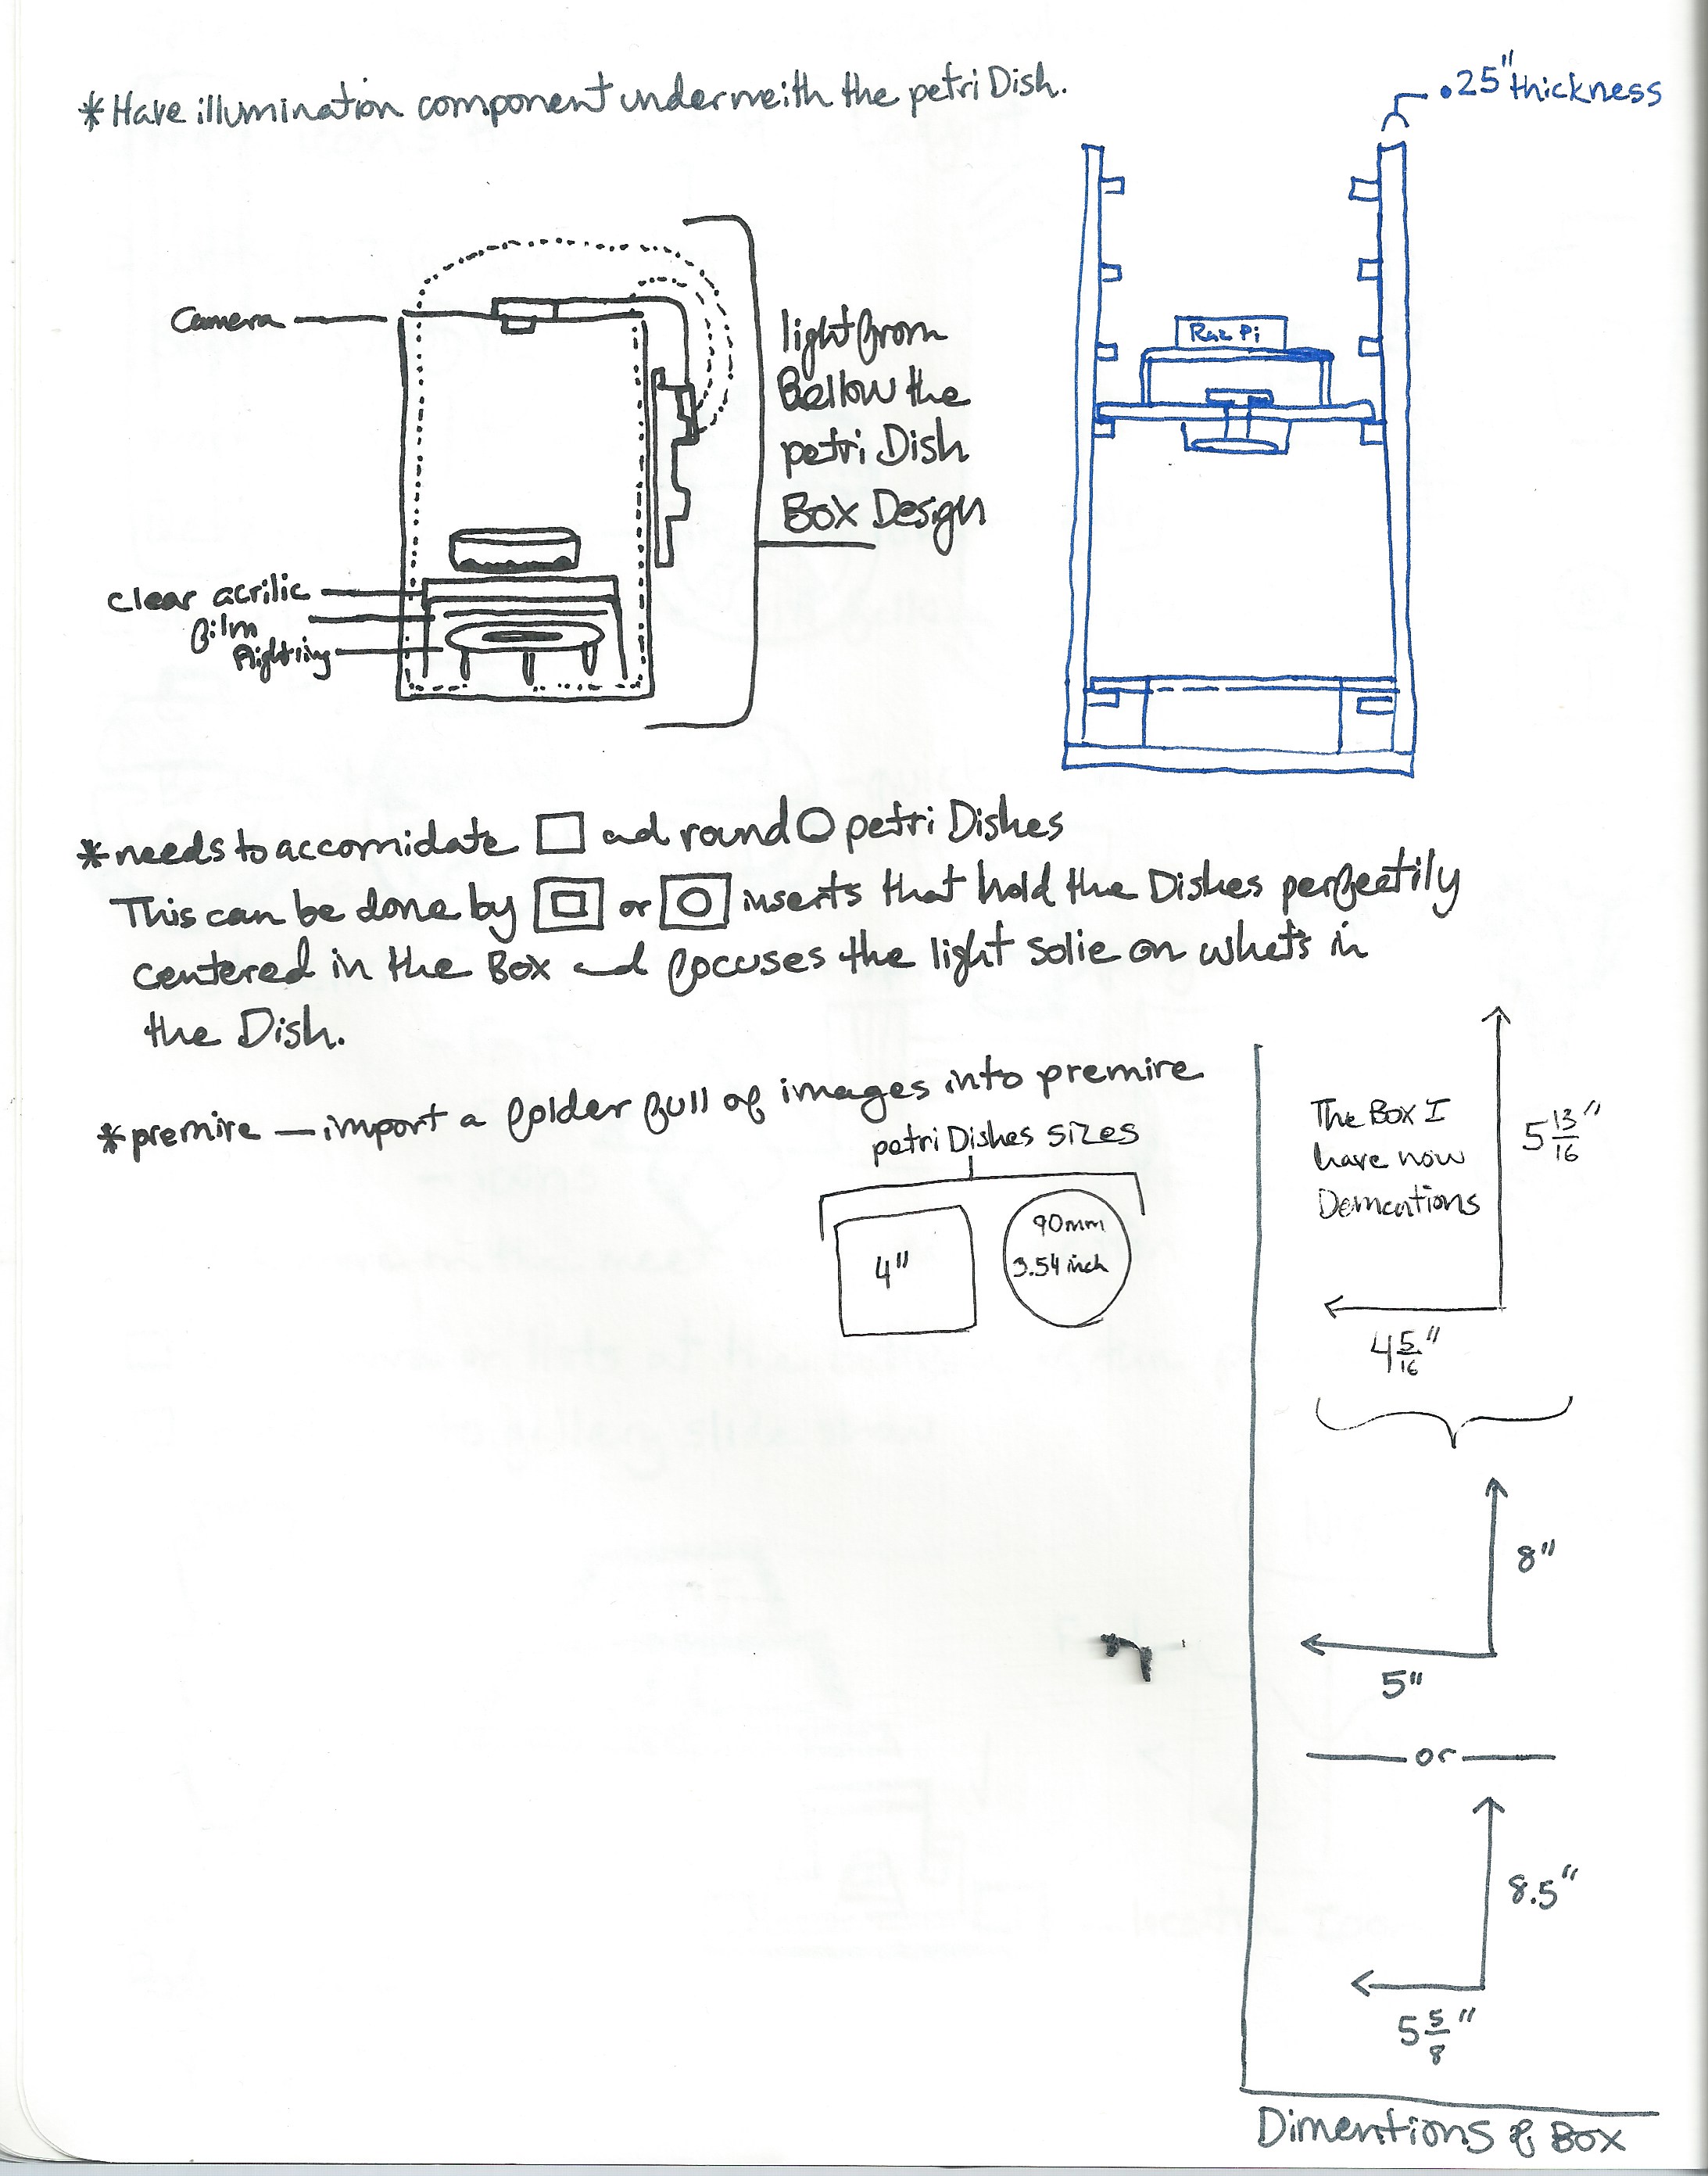 *Have illumination component underneith the petri Dish.
.25" thickness
Camera
light from
Bellow the
petri Dish
Box Design
Raz Pi
clear acrilic
film
light ring
*needs to accomidate □ and round O petri Dishes
This can be done by or inserts that hold the Dishes perfectily
centered in the Box and focuses the light solie on whats in
the Dish.
*premire — import a folder full of images into premire
petri Dishes sizes
4"
90mm
3.54 inch
The Box I
have now
Dementions
5 13/16"
4 5/16"
8"
5"
or
8.5"
5 5/8"
Dimentions of Box